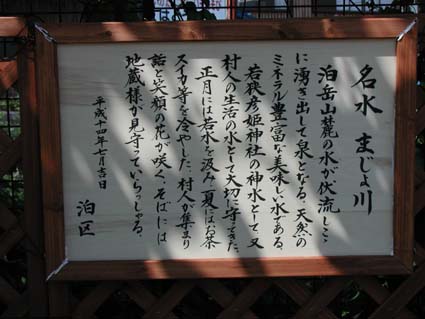 名水 まじょ川
泊岳山麓の水が伏流しここ
に湧き出して泉となる、天然の
ミネラル豊富な美味しい水である、
若狭彦姫神社の神水として、又
村人の生活の水として大切に守ってきた、
正月には若水を汲み、夏にはお茶
スイカ等を冷やした、村人が集まり
話と笑顔の花が咲く、そばには
地蔵様が見守っていらっしゃる、
平成十四年七月吉日
泊区